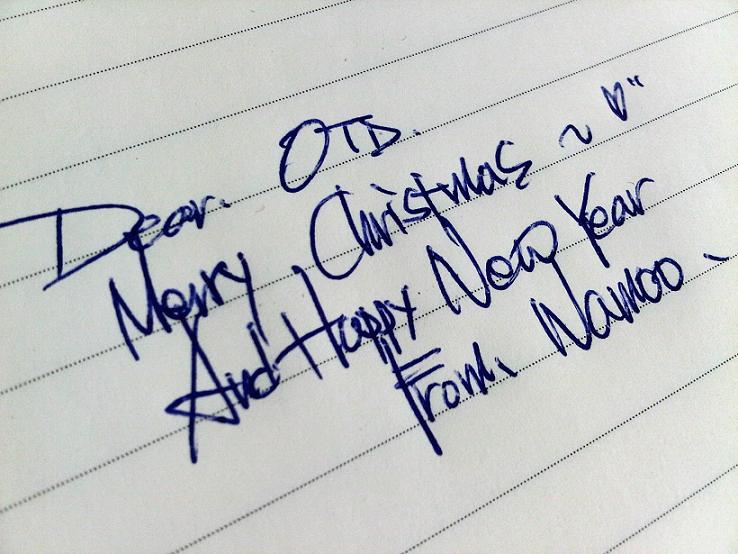 Dear. OTD.
Merry Christmas ~ ♡"
And Happy New Year
From. Namoo -